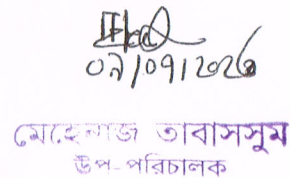 ০৭/০৭/২০২৬
মেহেনাজ তাবাসসুম
উপ-পরিচালক